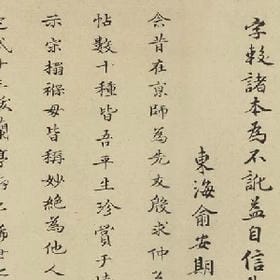 字較諸本為不訛益自信
東海俞安期
余昔在京師為先友殷求仲
帖數十種皆吾平生珍賞于
示宗搨褫毋皆稱妙絕為他人
蘭亭